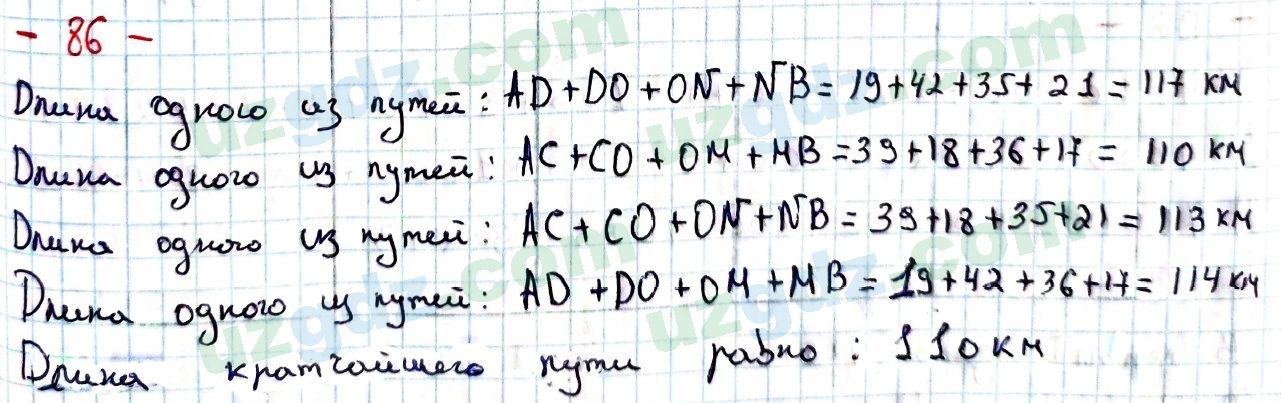 - 86 -
Длина одного из путей: AD+DO+ON+NB=19+42+35+21=117 км
Длина одного из путей: AC+CO+OM+MB=39+18+36+17= 110 км
Длина одного из путей: AC+CO+ON+NB=39+18+35+21=113 км
Длина одного из путей: AD+DO+OM+MB=19+42+36+17=114 км
Длина кратчайшего пути равно: 110 км
uzgdz.com
uzgdz.com
uzgdz.com
uzgdz.com